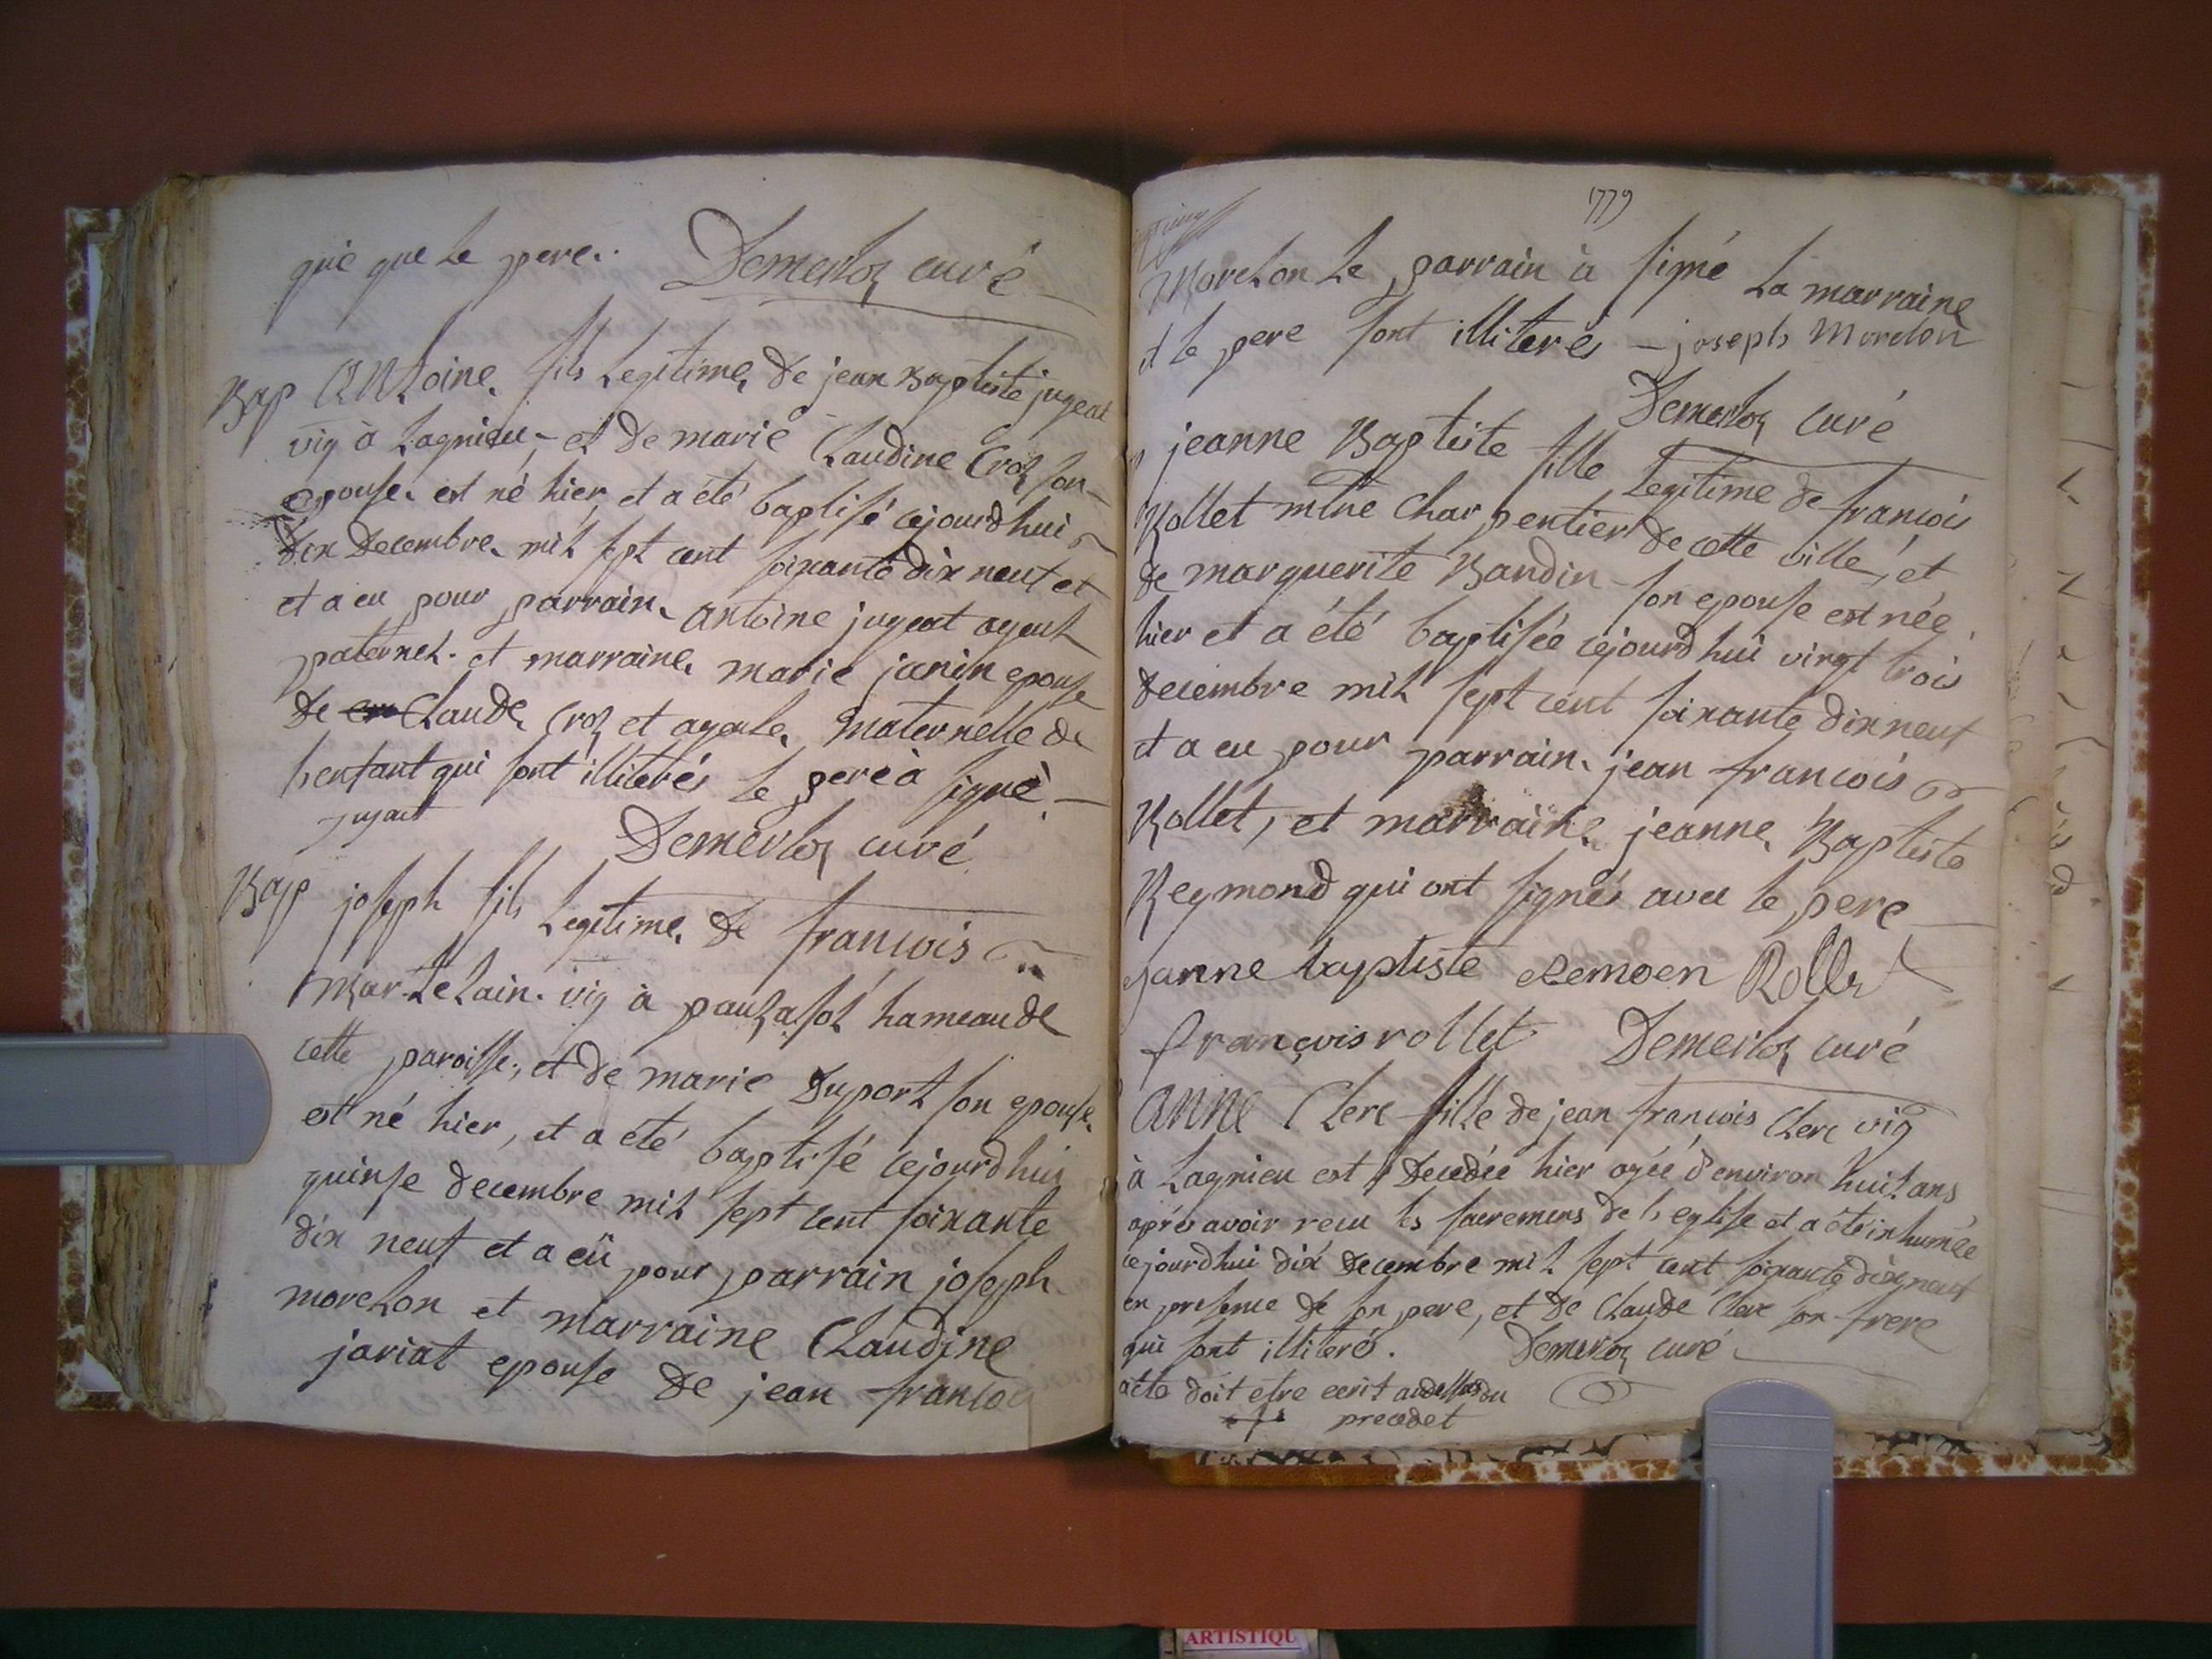 què que le pere. Demerloz curé
Bap Antoine fils legitime de jean Baptiste jugeat
vig à Lagnieu, et de marie Claudine Croz son
epouse est né hier, et a été baptisé cejourdhui
dix Decembre mil sept cent soixante dix neuf et
et a eu pour parrain antoine jugeat ayeul
paternel. et marraine marie janin epouse
de Claude Croz et ayeule maternelle de
lenfant qui sont illiterés le pere à signè
jujact
Demerloz curé
Bap joseph fils legitime de francois
Bartelain vig à paulasol hameau de
cette paroisse, et de marie Duport son epouse
est né hier, et a été baptisé cejourdhui
quinse decembre mil sept cent soixante
dix neuf et a eü pour parrain joseph
morelon et marraine Claudine
jariat epouse de jean francois
1779
Morelon le parrain à signé la marraine
et le pere sont illiterés - joseph Morelon
Demerloz curé
jeanne Baptiste fille legitime de francois
Rollet mtre Charpentier de cette ville, et
de marguerite Bandin son epouse est née
hier et a été baptisée cejourd hui vingt trois
decembre mil sept cent soixante dix neuf
et a eu pour parrain jean francois
Rollet, et marraine jeanne Baptiste
Reymond qui ont signés avec le pere
janne baptiste Remoen Rollet
françois rollet Demerloz curé
Anne Clerc fille de jean francois Clerc vig
à Lagnieu est Decedée hier agée d'environ huit ans
après avoir recu les sacremens de l'eglise et a été inhumée
cejourdhui dix Decembre mil sept cent soixante dix neuf
en presence de son pere, et de Claude Clerc son frere
qui sont illiterés. Demerloz curé
acte doit etre ecrit audessus du
precedet
ARTISTIQU